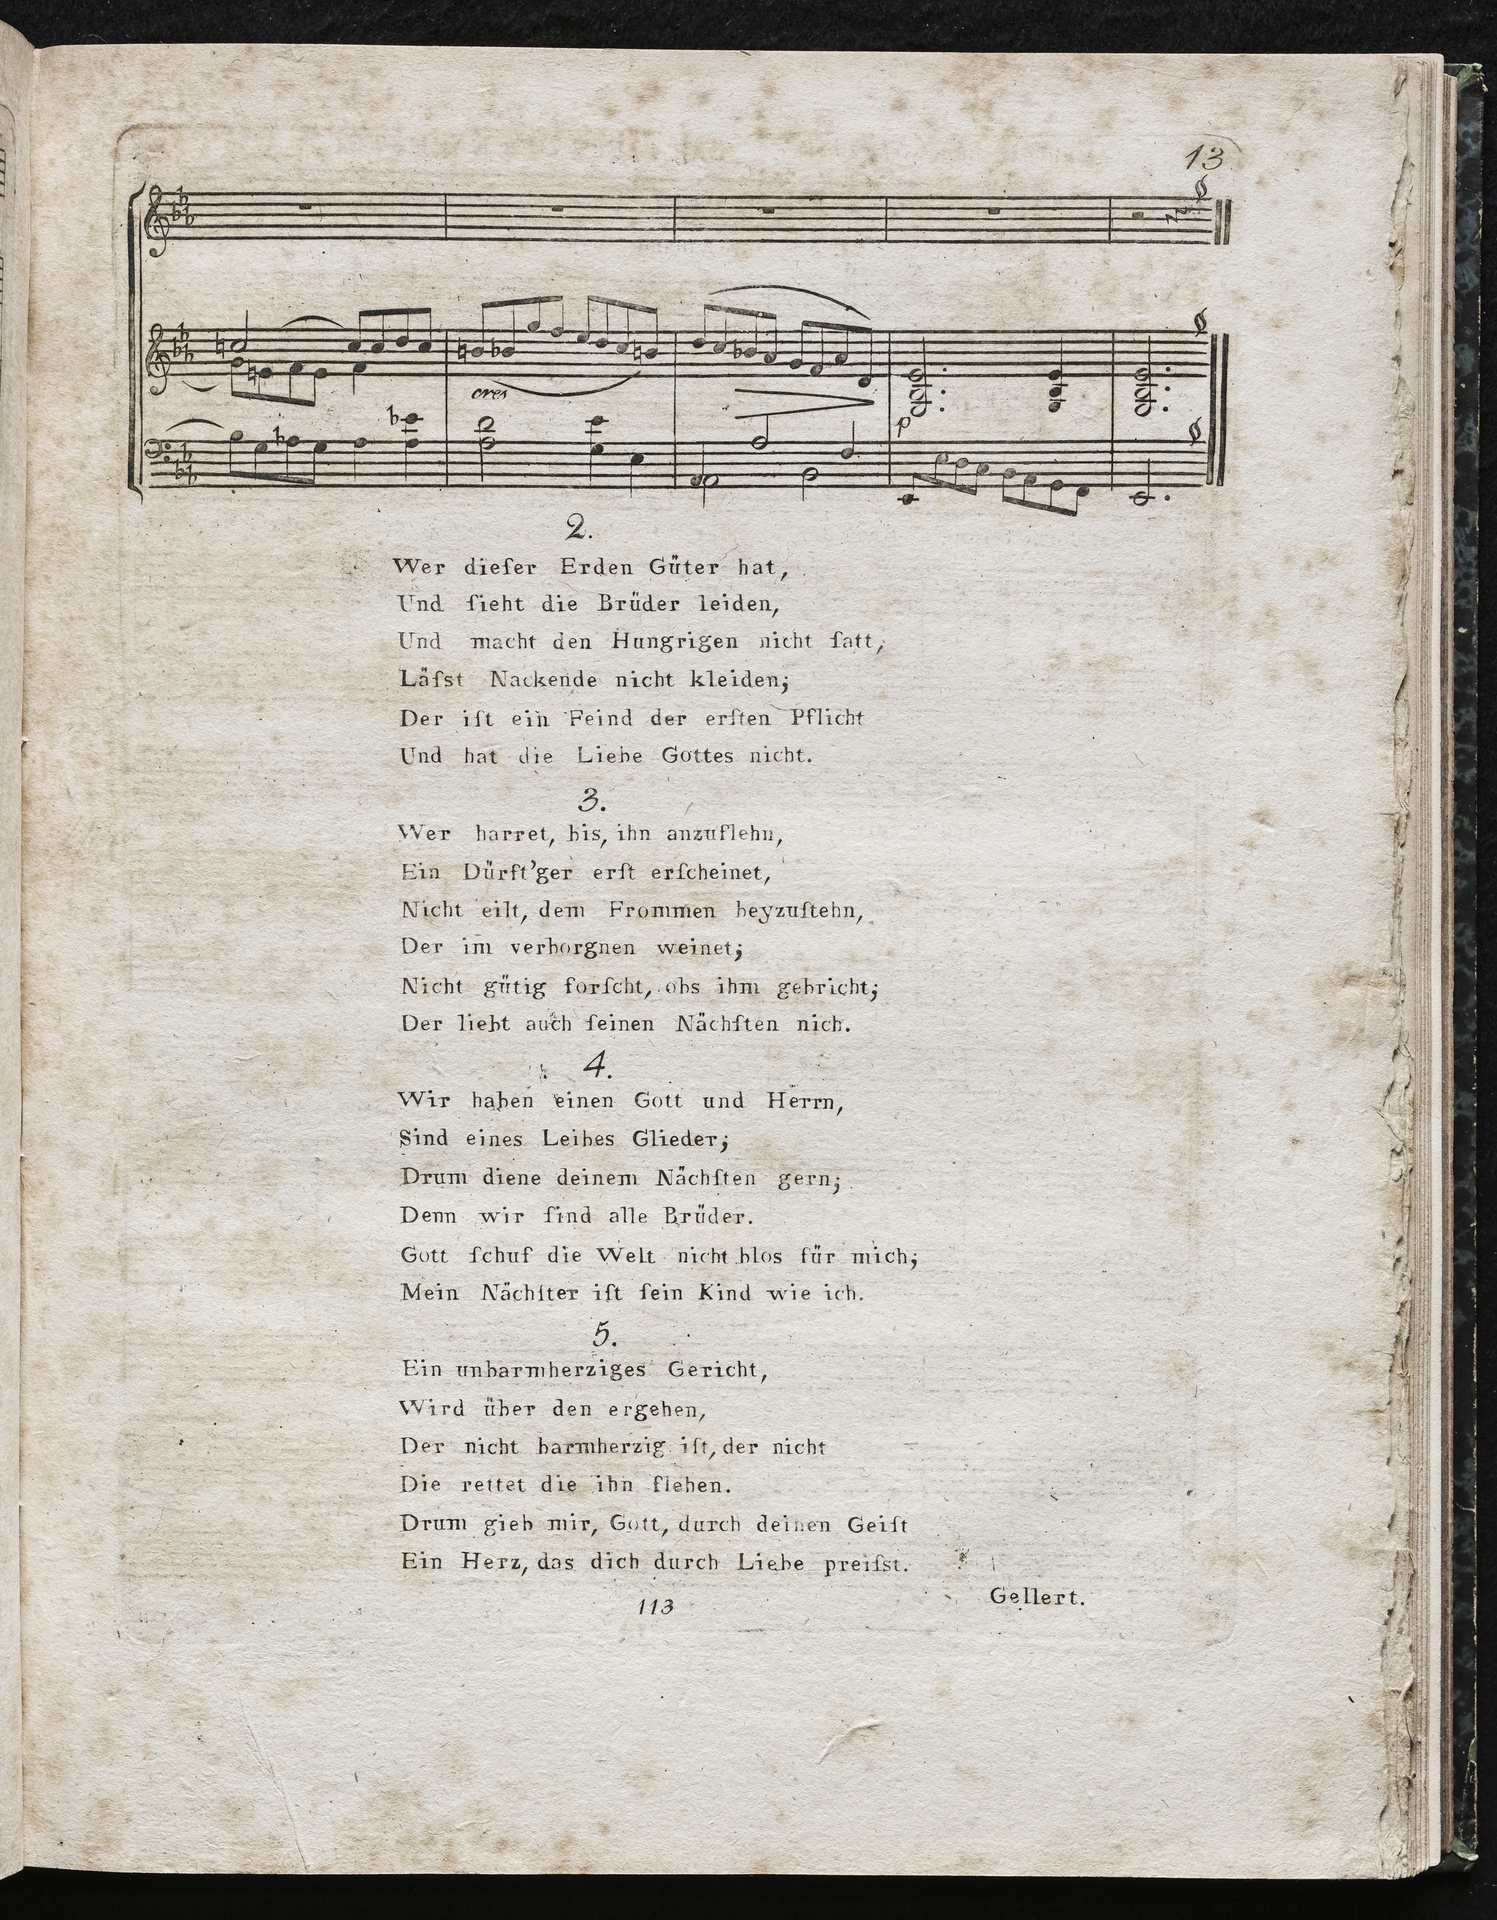 13
cres
p
2.
Wer dieſer Erden Güter hat,
Und ſieht die Brüder leiden,
Und macht den Hungrigen nicht ſatt,
Läſst Nackende nicht kleiden;
Der iſt ein Feind der erſten Pflicht
Und hat die Liebe Gottes nicht.
3.
Wer harret, bis, ihn anzuflehn,
Ein Dürft'ger erſt erſcheinet,
Nicht eilt, dem Frommen beyzuſtehn,
Der im verborgnen weinet;
Nicht gütig forſcht, obs ihm gebricht;
Der liebt auch ſeinen Nächſten nich.
4.
Wir haben einen Gott und Herrn,
Sind eines Leibes Glieder;
Drum diene deinem Nächſten gern;
Denn wir ſind alle Brüder.
Gott ſchuf die Welt nicht blos für mich;
Mein Nächſter iſt ſein Kind wie ich.
5.
Ein unbarmherziges Gericht,
Wird über den ergehen,
Der nicht barmherzig iſt, der nicht
Die rettet die ihn flehen.
Drum gieb mir, Gott, durch deinen Geiſt
Ein Herz, das dich durch Liebe preiſst.
Gellert.
113